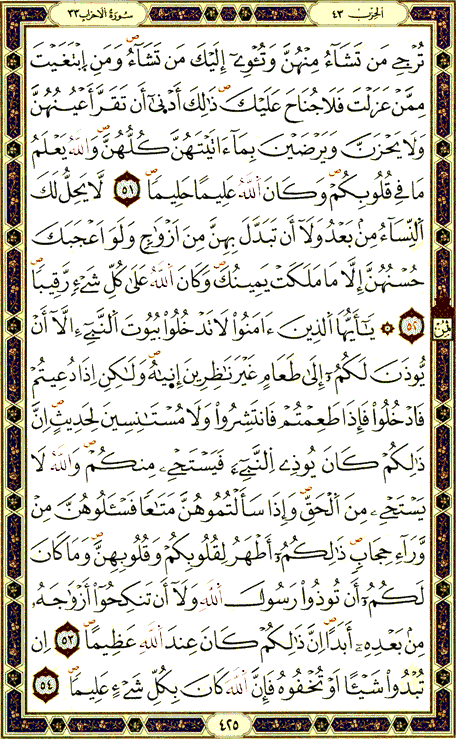 الحزب ٤٣
سورة الاحزاب ٣٣
تُرْجِے مَن تَشَآءُ مِنْهُنَّ وَتُـْٔوِےٓ إِلَيْكَ مَن تَشَآءُ وَمَنِ اِبْتَغَيْتَ
مِمَّنْ عَزَلْتَ فَلَا جُنَاحَ عَلَيْكَ ذَٰلِكَ أَدْنَىٰٓ أَن تَقَرَّ أَعْيُنُهُنَّ
وَلَا يَحْزَنَّ وَيَرْضَيْنَ بِمَآ ءَاتَيْتَهُنَّ كُلُّهُنَّ وَاللَّهُ يَعْلَمُ
مَا فِے قُلُوبِكُمْ وَكَانَ اَللَّهُ عَلِيمًا حَلِيمًا ٥١ لَّا يَحِلُّ لَكَ
اَلنِّسَآءُ مِنۢ بَعْدُ وَلَآ أَن تَبَدَّلَ بِهِنَّ مِنَ اَزْوَٰجٍ وَلَوَ اَعْجَبَكَ
حُسْنُهُنَّ إِلَّا مَا مَلَكَتْ يَمِينُكَ وَكَانَ اَللَّهُ عَلَىٰ كُلِّ شَےْءٍ رَّقِيبًا
٥٢ يَٰٓأَيُّهَا اَلذِينَ ءَامَنُواْ لَا تَدْخُلُواْ بُيُوتَ اَلنَّبِےٓءِ الَّآ أَنْ
يُّوذَنَ لَكُمُۥٓ إِلَىٰ طَعَامٍ غَيْرَ نَٰظِرِينَ إِنَىٰهُ وَلَٰكِنِ اِذَا دُعِيتُمْ
فَادْخُلُواْ فَإِذَا طَعِمْتُمْ فَانتَشِرُواْ وَلَا مُسْتَٰنِسِينَ لِحَدِيثٍ اِنَّ
ذَٰلِكُمْ كَانَ يُوذِے اِلنَّبِےٓءَ فَيَسْتَحْيِۦ مِنكُمْ وَاللَّهُ لَا
يَسْتَحْيِۦ مِنَ اَلْحَقِّ وَإِذَا سَأَلْتُمُوهُنَّ مَتَٰعًا فَسْـَٔلُوهُنَّ مِنْ
وَّرَآءِ حِجَابٍ ذَٰلِكُمُۥٓ أَطْهَرُ لِقُلُوبِكُمْ وَقُلُوبِهِنَّ وَمَا كَانَ
لَكُمُۥٓ أَن تُوذُواْ رَسُولَ اَللَّهِ وَلَآ أَن تَنكِحُوٓاْ أَزْوَٰجَهُۥ
مِنۢ بَعْدِهِۦٓ أَبَدًا اِنَّ ذَٰلِكُمْ كَانَ عِندَ اَللَّهِ عَظِيمًا ٥٣ اِن
تُبْدُواْ شَيْـًٔا اَوْ تُخْفُوهُ فَإِنَّ اَللَّهَ كَانَ بِكُلِّ شَےْءٍ عَلِيمًا ٥٤
ثمن
٤٢٥